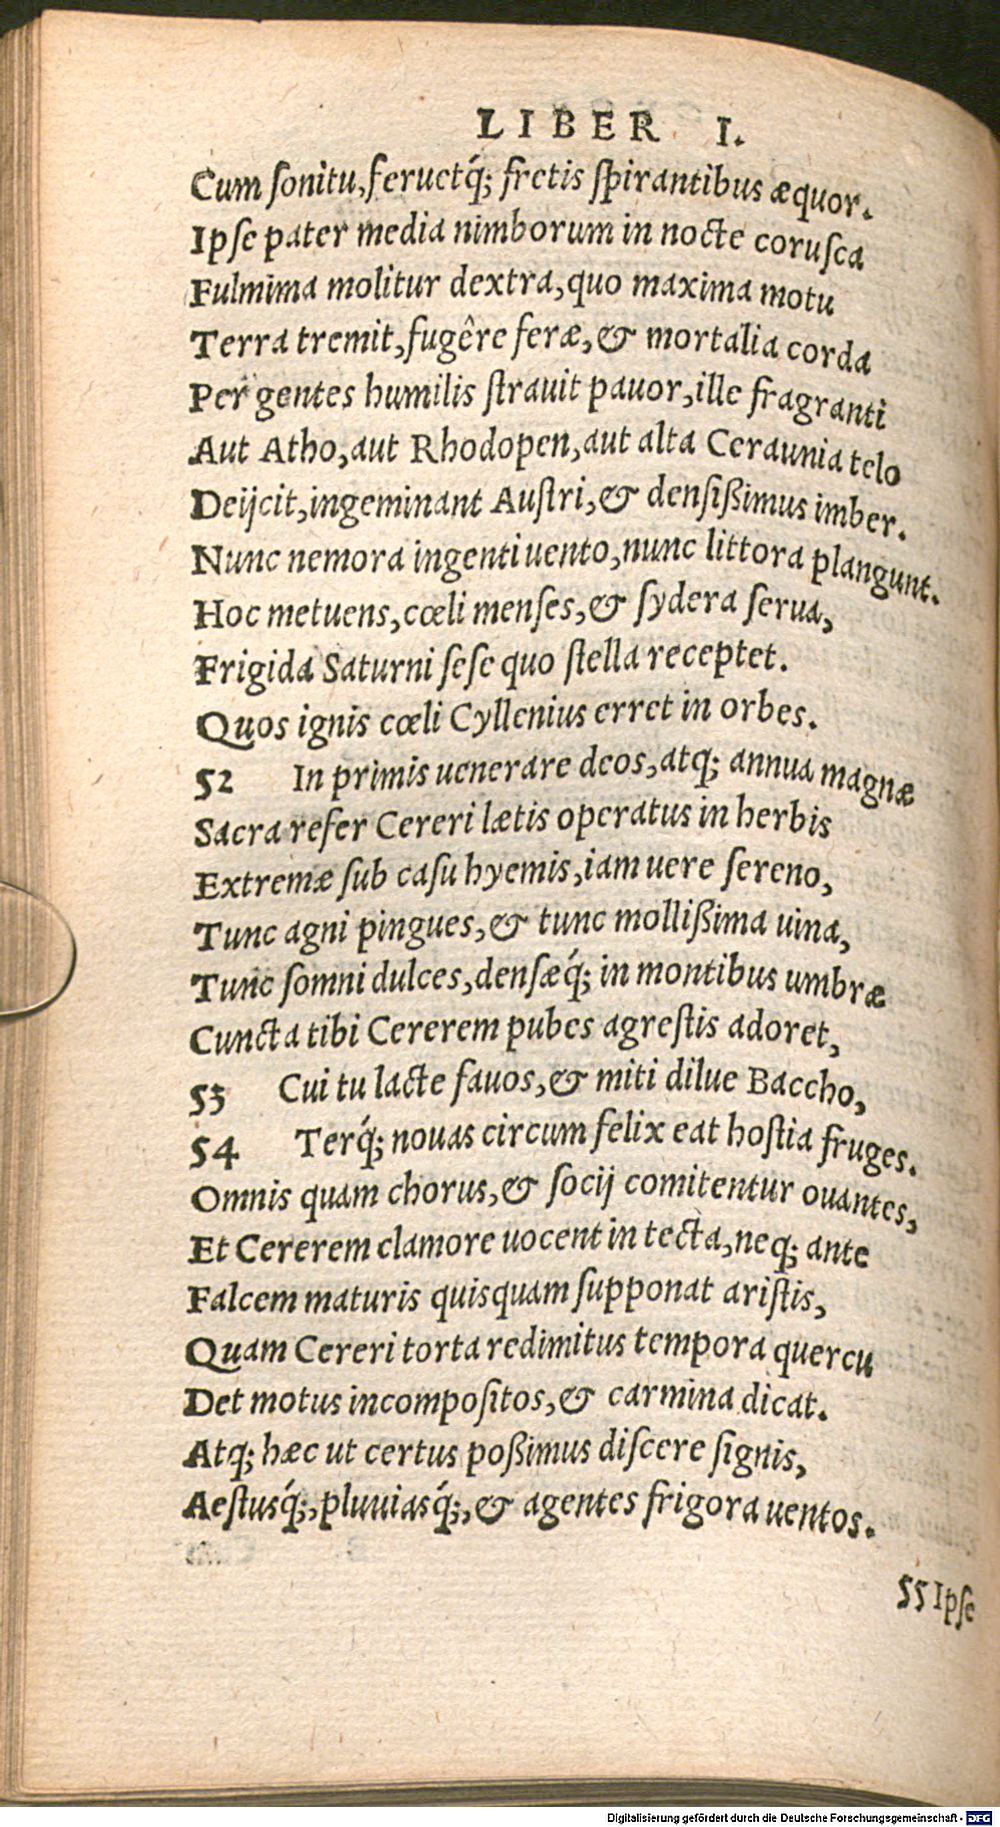 LIBER I.
Cum ſonitu, feruetq́; fretis ſpirantibus æquor.
Ipſe pater media nimborum in nocte coruſca
Fulmina molitur dextra, quo maxima motu
Terra tremit, fugêre feræ, & mortalia corda
Per gentes humilis ſtrauit pauor, ille fragranti
Aut Atho, aut Rhodopen, aut alta Ceraunia telo
Deijcit, ingeminant Auſtri, & denſißimus imber.
Nunc nemora ingenti uento, nunc littora plangunt.
Hoc metuens, cœli menſes, & ſydera ſerua,
Frigida Saturni ſeſe quo ſtella receptet.
Quos ignis cœli Cyllenius erret in orbes.
52 In primis uenerare deos, atq; annua magnæ
Sacra refer Cereri lætis operatus in herbis
Extremæ ſub caſu hyemis, iam uere ſereno,
Tunc agni pingues, & tunc mollißima uina,
Tunc ſomni dulces, denſæq́; in montibus umbræ
Cuncta tibi Cererem pubes agreſtis adoret,
53 Cui tu lacte fauos, & miti dilue Baccho,
54 Terq́; nouas circum felix eat hoſtia fruges.
Omnis quam chorus, & ſocij comitentur ouantes,
Et Cererem clamore uocent in tecta, neq; ante
Falcem maturis quisquam ſupponat ariſtis,
Quam Cereri torta redimitus tempora quercu
Det motus incompoſitos, & carmina dicat.
Atq; hæc ut certus poßimus diſcere ſignis,
Aeſtusq́;, pluuiasq́;, & agentes frigora uentos.
55 Ipſe
Digitalisierung gefördert durch die Deutsche Forschungsgemeinschaft - DFG